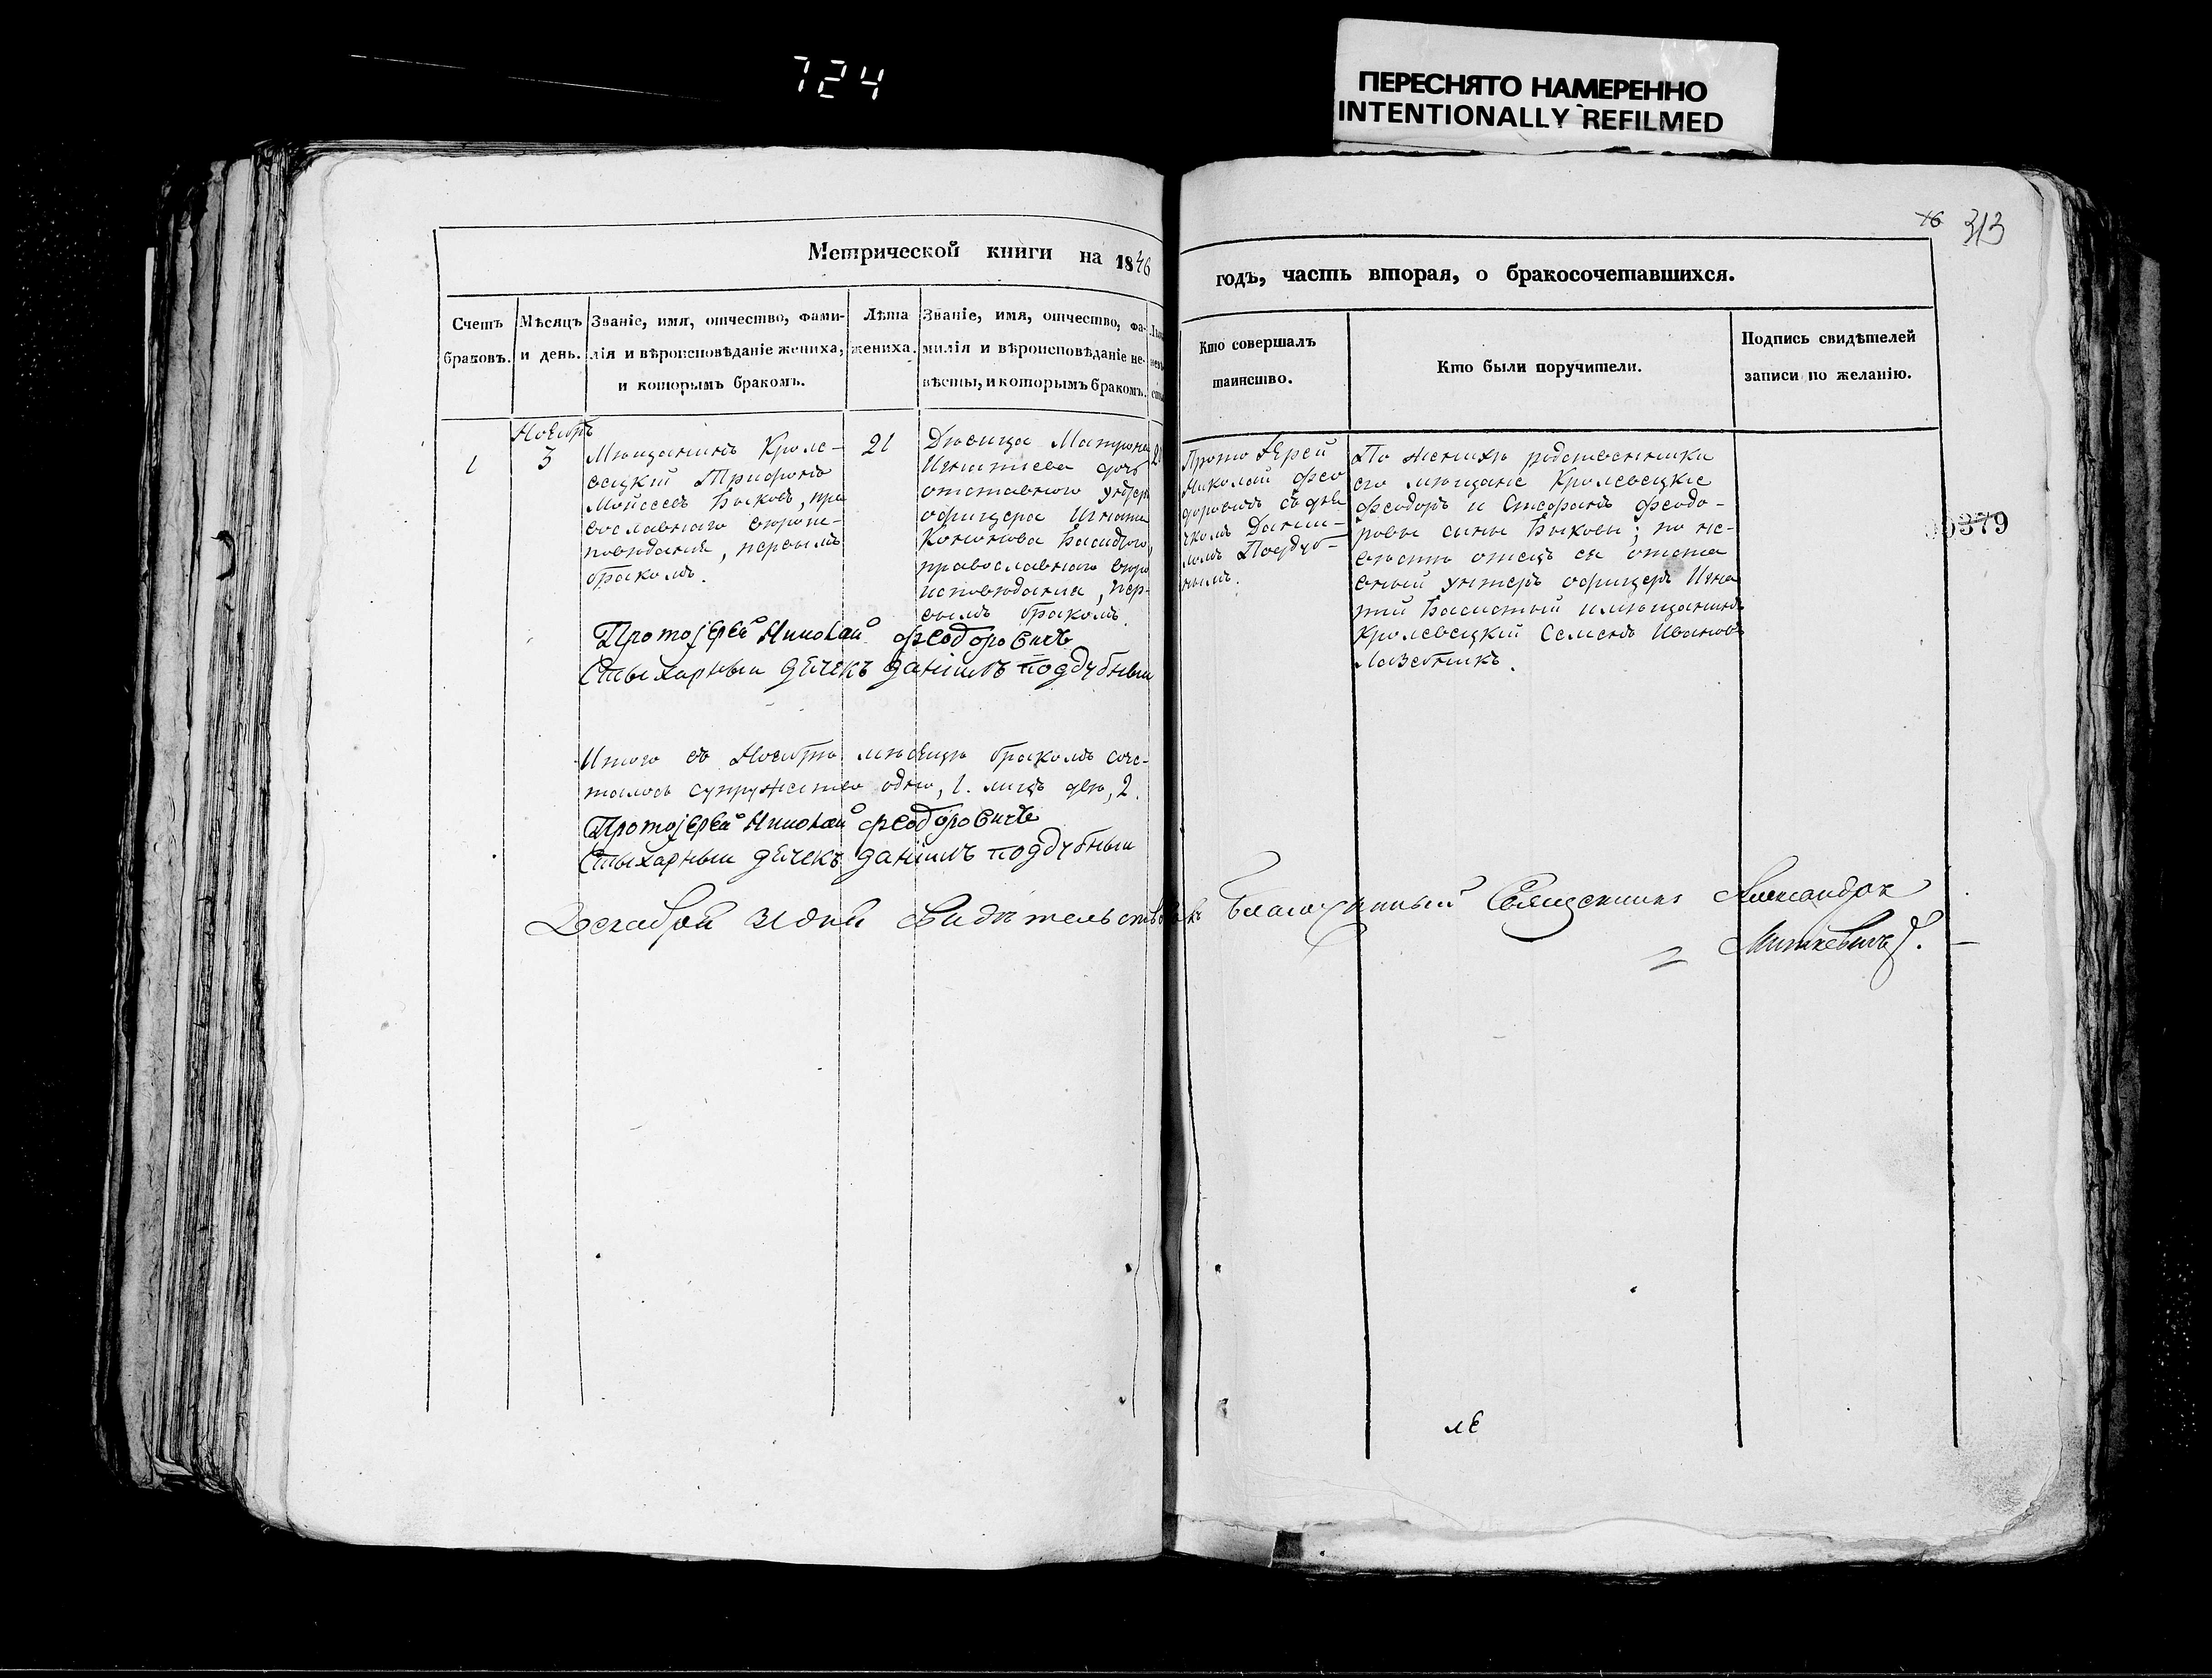 724
ПЕРЕСНЯТО НАМЕРЕННО
INTENTIONALLY REFILMED
Метрической книги на 1846
годъ, часть вторая, о бракосочетавшихся.
16 313
Счетъ
браковъ.
Мѣсяцъ
и день.
Званіе, имя, отчество, фами-
лія и вѣроисповѣданіе жениха,
и которымъ бракомъ.
Лѣта
жениха.
Званіе, имя, отчество, фа-
милія и вѣроисповѣданіе не-
вѣсты, и которымъ бракомъ.
Кто совершалъ
таинство.
Кто были поручители.
Подпись свидѣтелей
записи по желанію.
1
Ноябрь
3
Мѣщанинъ Кроле-
вецкій Трифонъ
Мойсеевъ Быковъ, пра
вославнаго вѣроис-
повѣданія, первымъ
бракомъ.
21
Дѣвица Матрона
Игнатиева дочь
отставного унтеръ
офицера Игнатия
Кононова Басистого,
православнаго вѣро
исповѣданія, пер-
вымъ бракомъ.
Прото Іерей
Николай Фео
доровичъ съ дья
чкомъ Дании-
ломъ Поддуб-
нымъ.
По женихѣ родственники
его мѣщане Кролевецкіе
Феодоръ и Стефанъ Феодо-
ровы сины Быковы; по не-
вѣстѣ отецъ ея отста
вный унтеръ офицеръ Игна
тий Басистый и мѣщанинъ
Кролевецкій Семенъ Ивановъ
Протоіерей Николай Феодоровичъ
Стыхарный дячекъ Даніилъ Поддубный
379
Итого въ Ноябрѣ мѣсяцѣ бракомъ соче-
талось супружество одно, 1. лицъ две, 2.
Протоіерей Николай Феодоровичъ
Стыхарный дячекъ Даніилъ Поддубный
Декабря 31 дня Свидѣтельствовалъ Благочинный Священникъ Александръ
Миткевичъ.